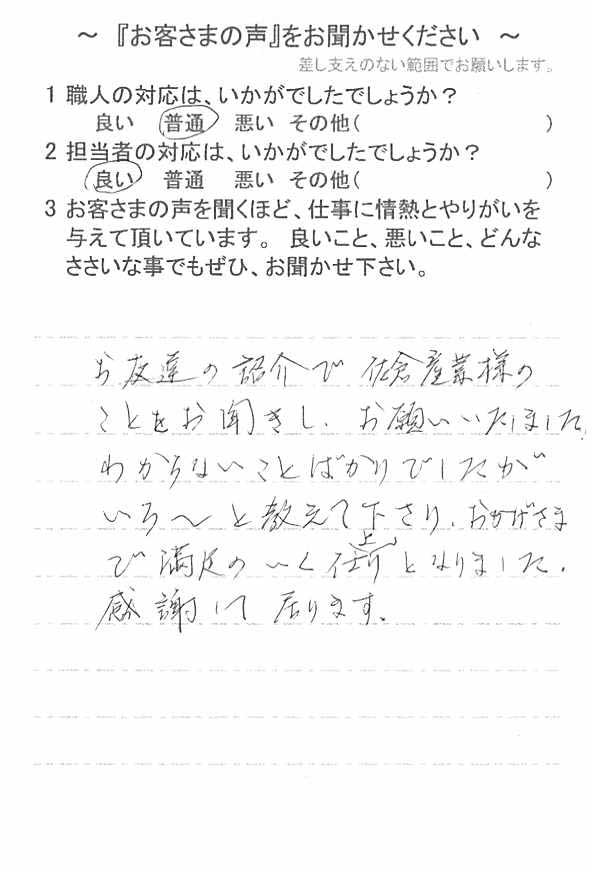 ～ 『お客さまの声』をお聞かせください ～
差し支えのない範囲でお願いします。
1 職人の対応は、いかがでしたでしょうか？
良い 普通 悪い その他( )
2 担当者の対応は、いかがでしたでしょうか？
良い 普通 悪い その他( )
3 お客さまの声を聞くほど、仕事に情熱とやりがいを
与えて頂いています。 良いこと、悪いこと、どんな
ささいな事でもぜひ、お聞かせ下さい。
お友達の紹介で 佐倉産業様の
ことをお聞きし、お願いいたしました。
わからないことばかりでしたが
いろ〜と教えて下さり、おかげさま
で満足のいく仕上りとなりました。
感謝して居ります。